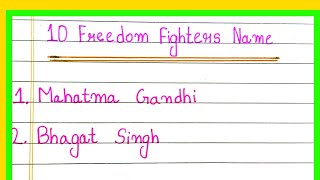 10 Freedom Fighters Name
1. Mahatma Gandhi
2. Bhagat Singh